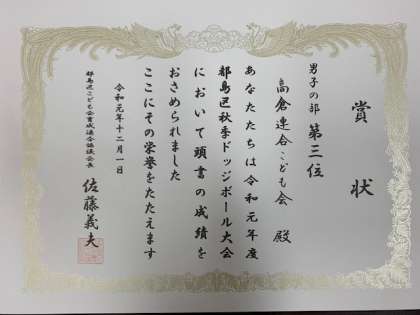 賞状
男子の部 第三位
高倉連合こども会 殿
あなたたちは令和元年度
都島区秋季ドッジボール大会
において頭書の成績を
おさめられました
ここにその栄誉をたたえます
令和元年十二月一日
都島区こども会育成連合協議会長
佐藤義夫